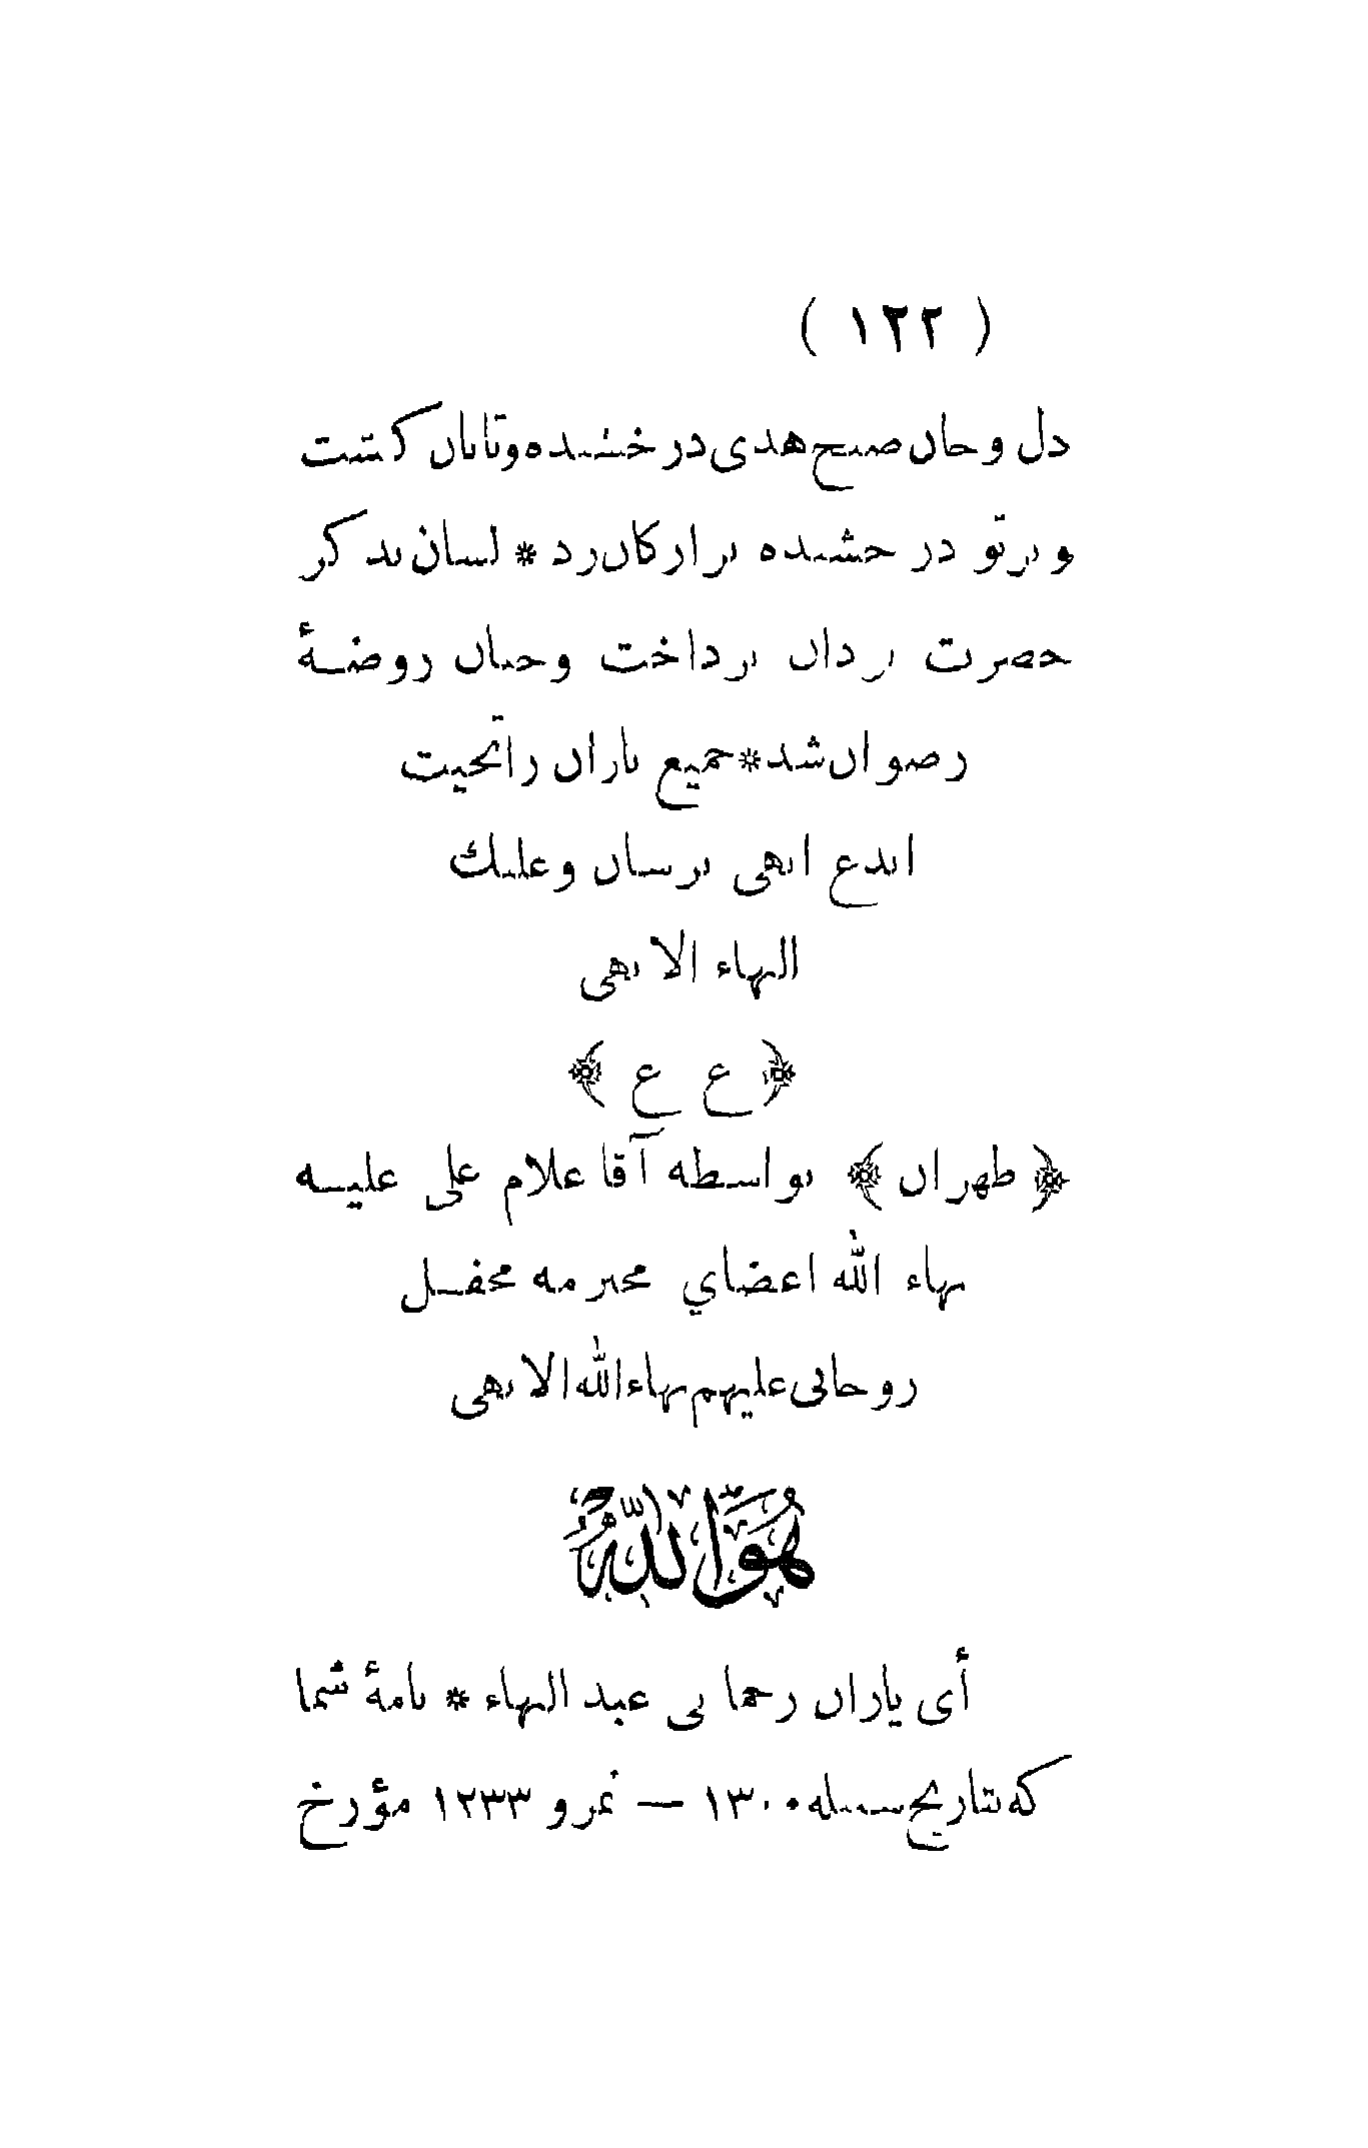 ( ١٢٢ )
دل و جان صبح هدی درخشنده و تابان کشت
و پرتو درخشنده بر ارکان زد * لسان بذکر
حضرت یزدان پرداخت و جنان روضـهٔ
رضوان شد * جمیع یاران را تحیت
ابدع ابهی برسان و علیك
البهاء الابهی
﴿ ع ع ﴾
﴿ طهران ﴾ بواسطه آقا غلام علی علیـه
بهاء الله اعضاي محترمه محفـل
روحانی علیهم بهاء الله الابهی
هُوَاللّٰهُ
أی یاران رحمانی عبد البهاء * نامهٔ شما
که بتاریخ سنبله ١٣٠٠ — نمرو ١٢٣٣ مؤرخ